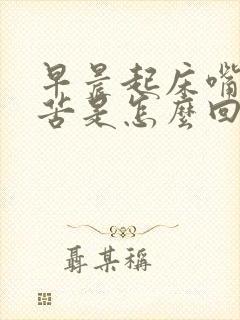 早晨起床嘴
苦是怎麼回
聶某稱